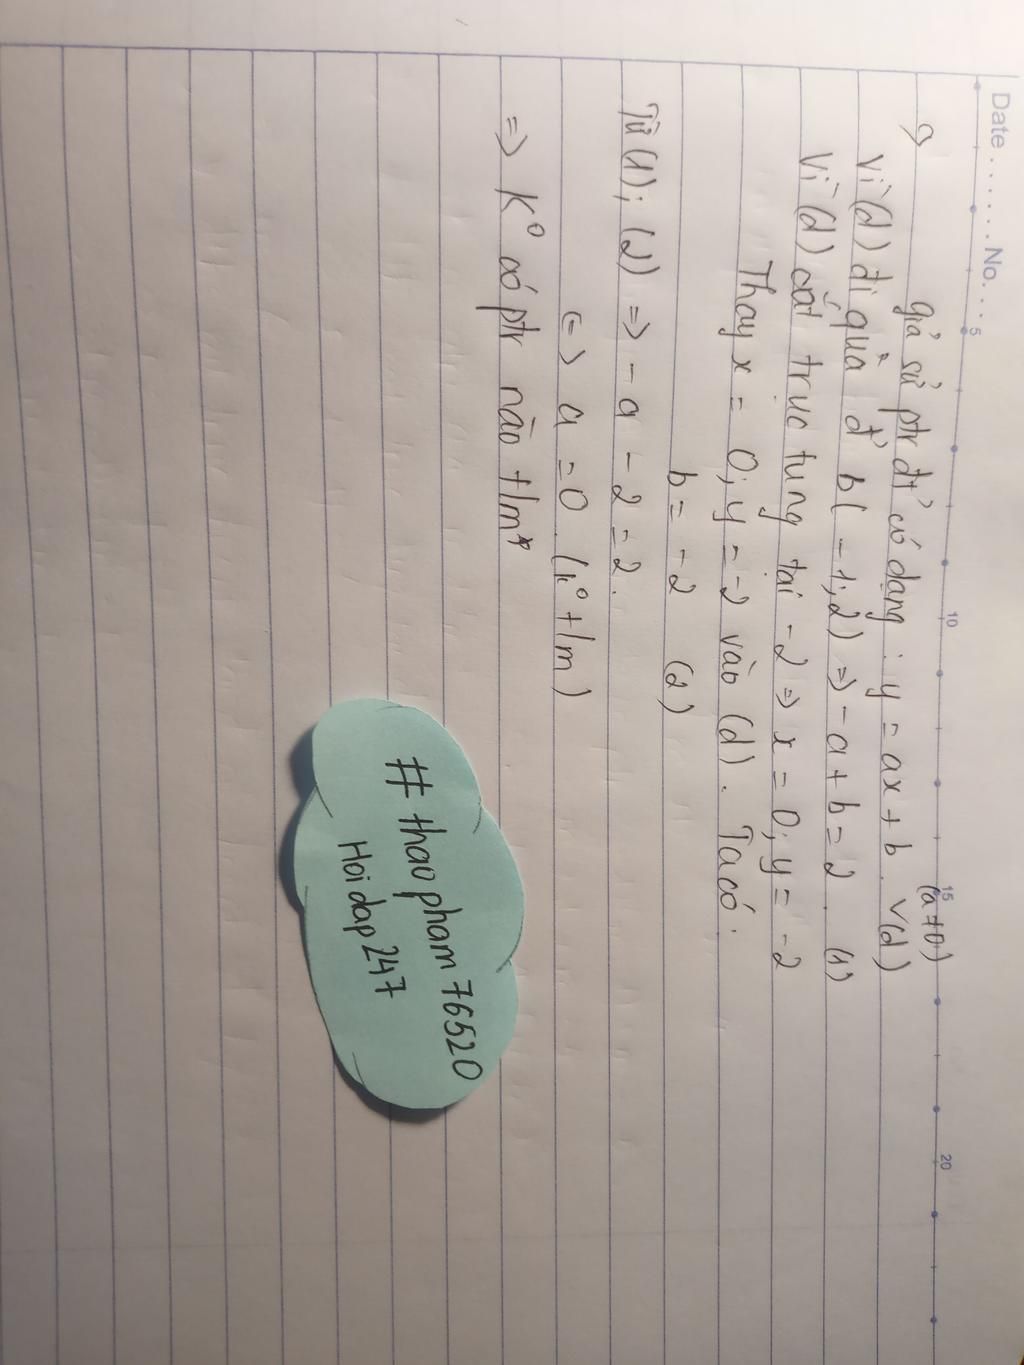 Date ....... No....
5 10 15 20
(a≠0)
giả sử ptr đt' có dạng : y = ax + b. V(d)
Vì (d) đi qua đ' b(-1;2) => -a + b = 2. (1)
Vì (d) cắt trục tung tại -2 => x = 0; y = -2
Thay x = 0; y = -2 vào (d). Ta có:
b = -2 (2)
Từ (1); (2) => -a - 2 = 2.
(=) a = 0. (k° t/m)
=> K° có ptr nào t/m
# thaopham76520
Hoidap247